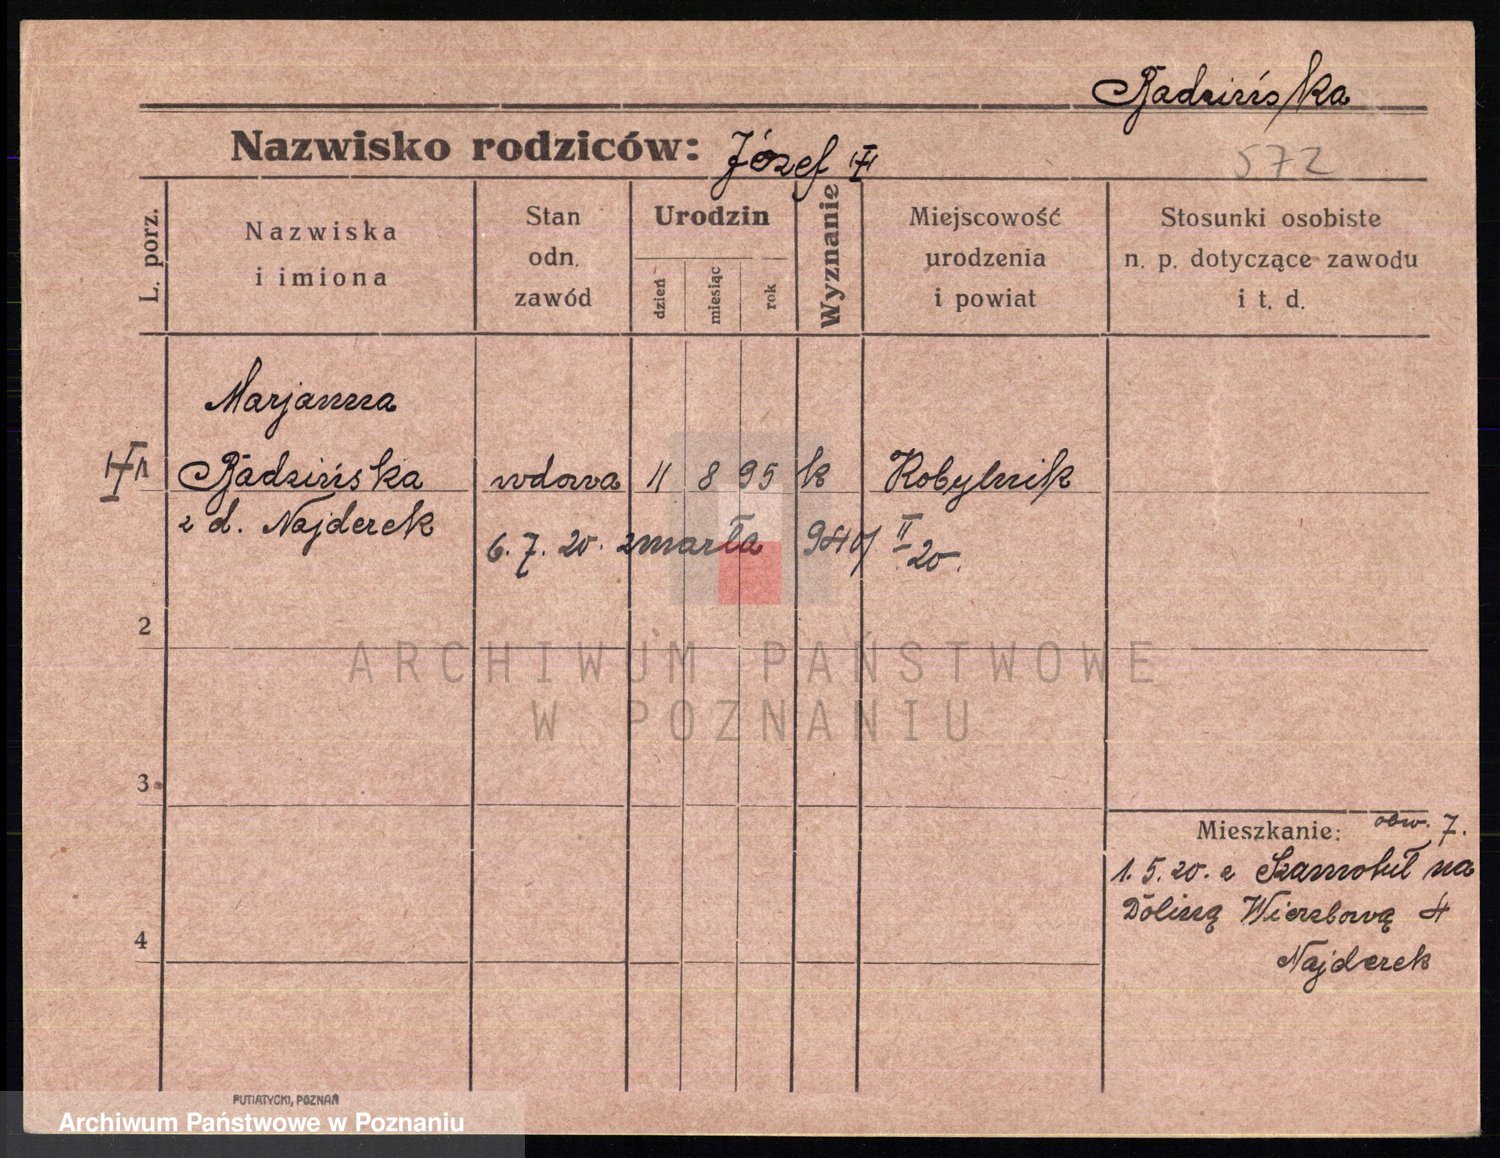 Radzińska
Nazwisko rodziców: Józef
572
L. porz.
Nazwiska
i imiona
Stan
odn.
zawód
Urodzin
dzień
miesiąc
rok
Wyznanie
Miejscowość
urodzenia
i powiat
Stosunki osobiste
n. p. dotyczące zawodu
i t. d.
Marjanna
1 Radzińska wdowa 11 8 95 k Kobylnik
z d. Najderek
6. 7. 20. zmarła 940/ II 20.
2
3
4
Mieszkanie: obw. 7.
1. 5. 20. z Szamotuł na
Dolinę Wierzbową 4
Najderek
ARCHIWUM PAŃSTWOWE
W POZNANIU
PUTIATYCKI, POZNAŃ
Archiwum Państwowe w Poznaniu